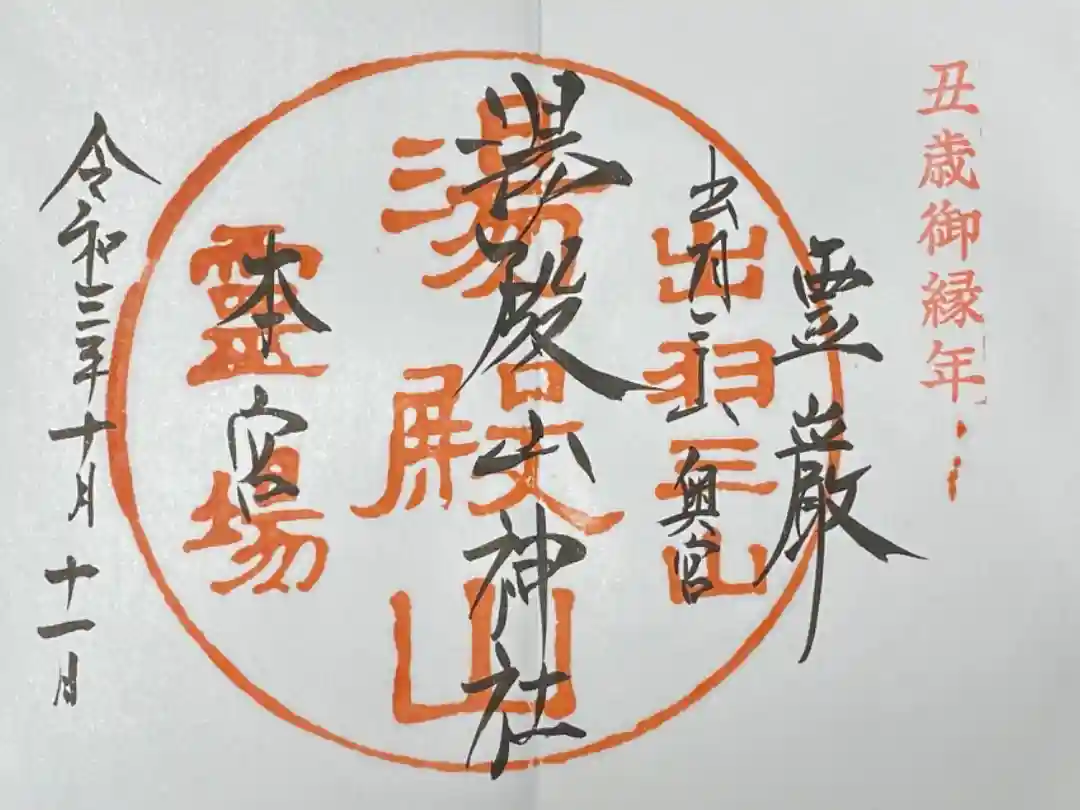 丑歳御縁年
霊巌
出羽三山 奥宮
湯殿山神社
本宮
令和三年十月十一日
出羽三山
湯殿山
靈場